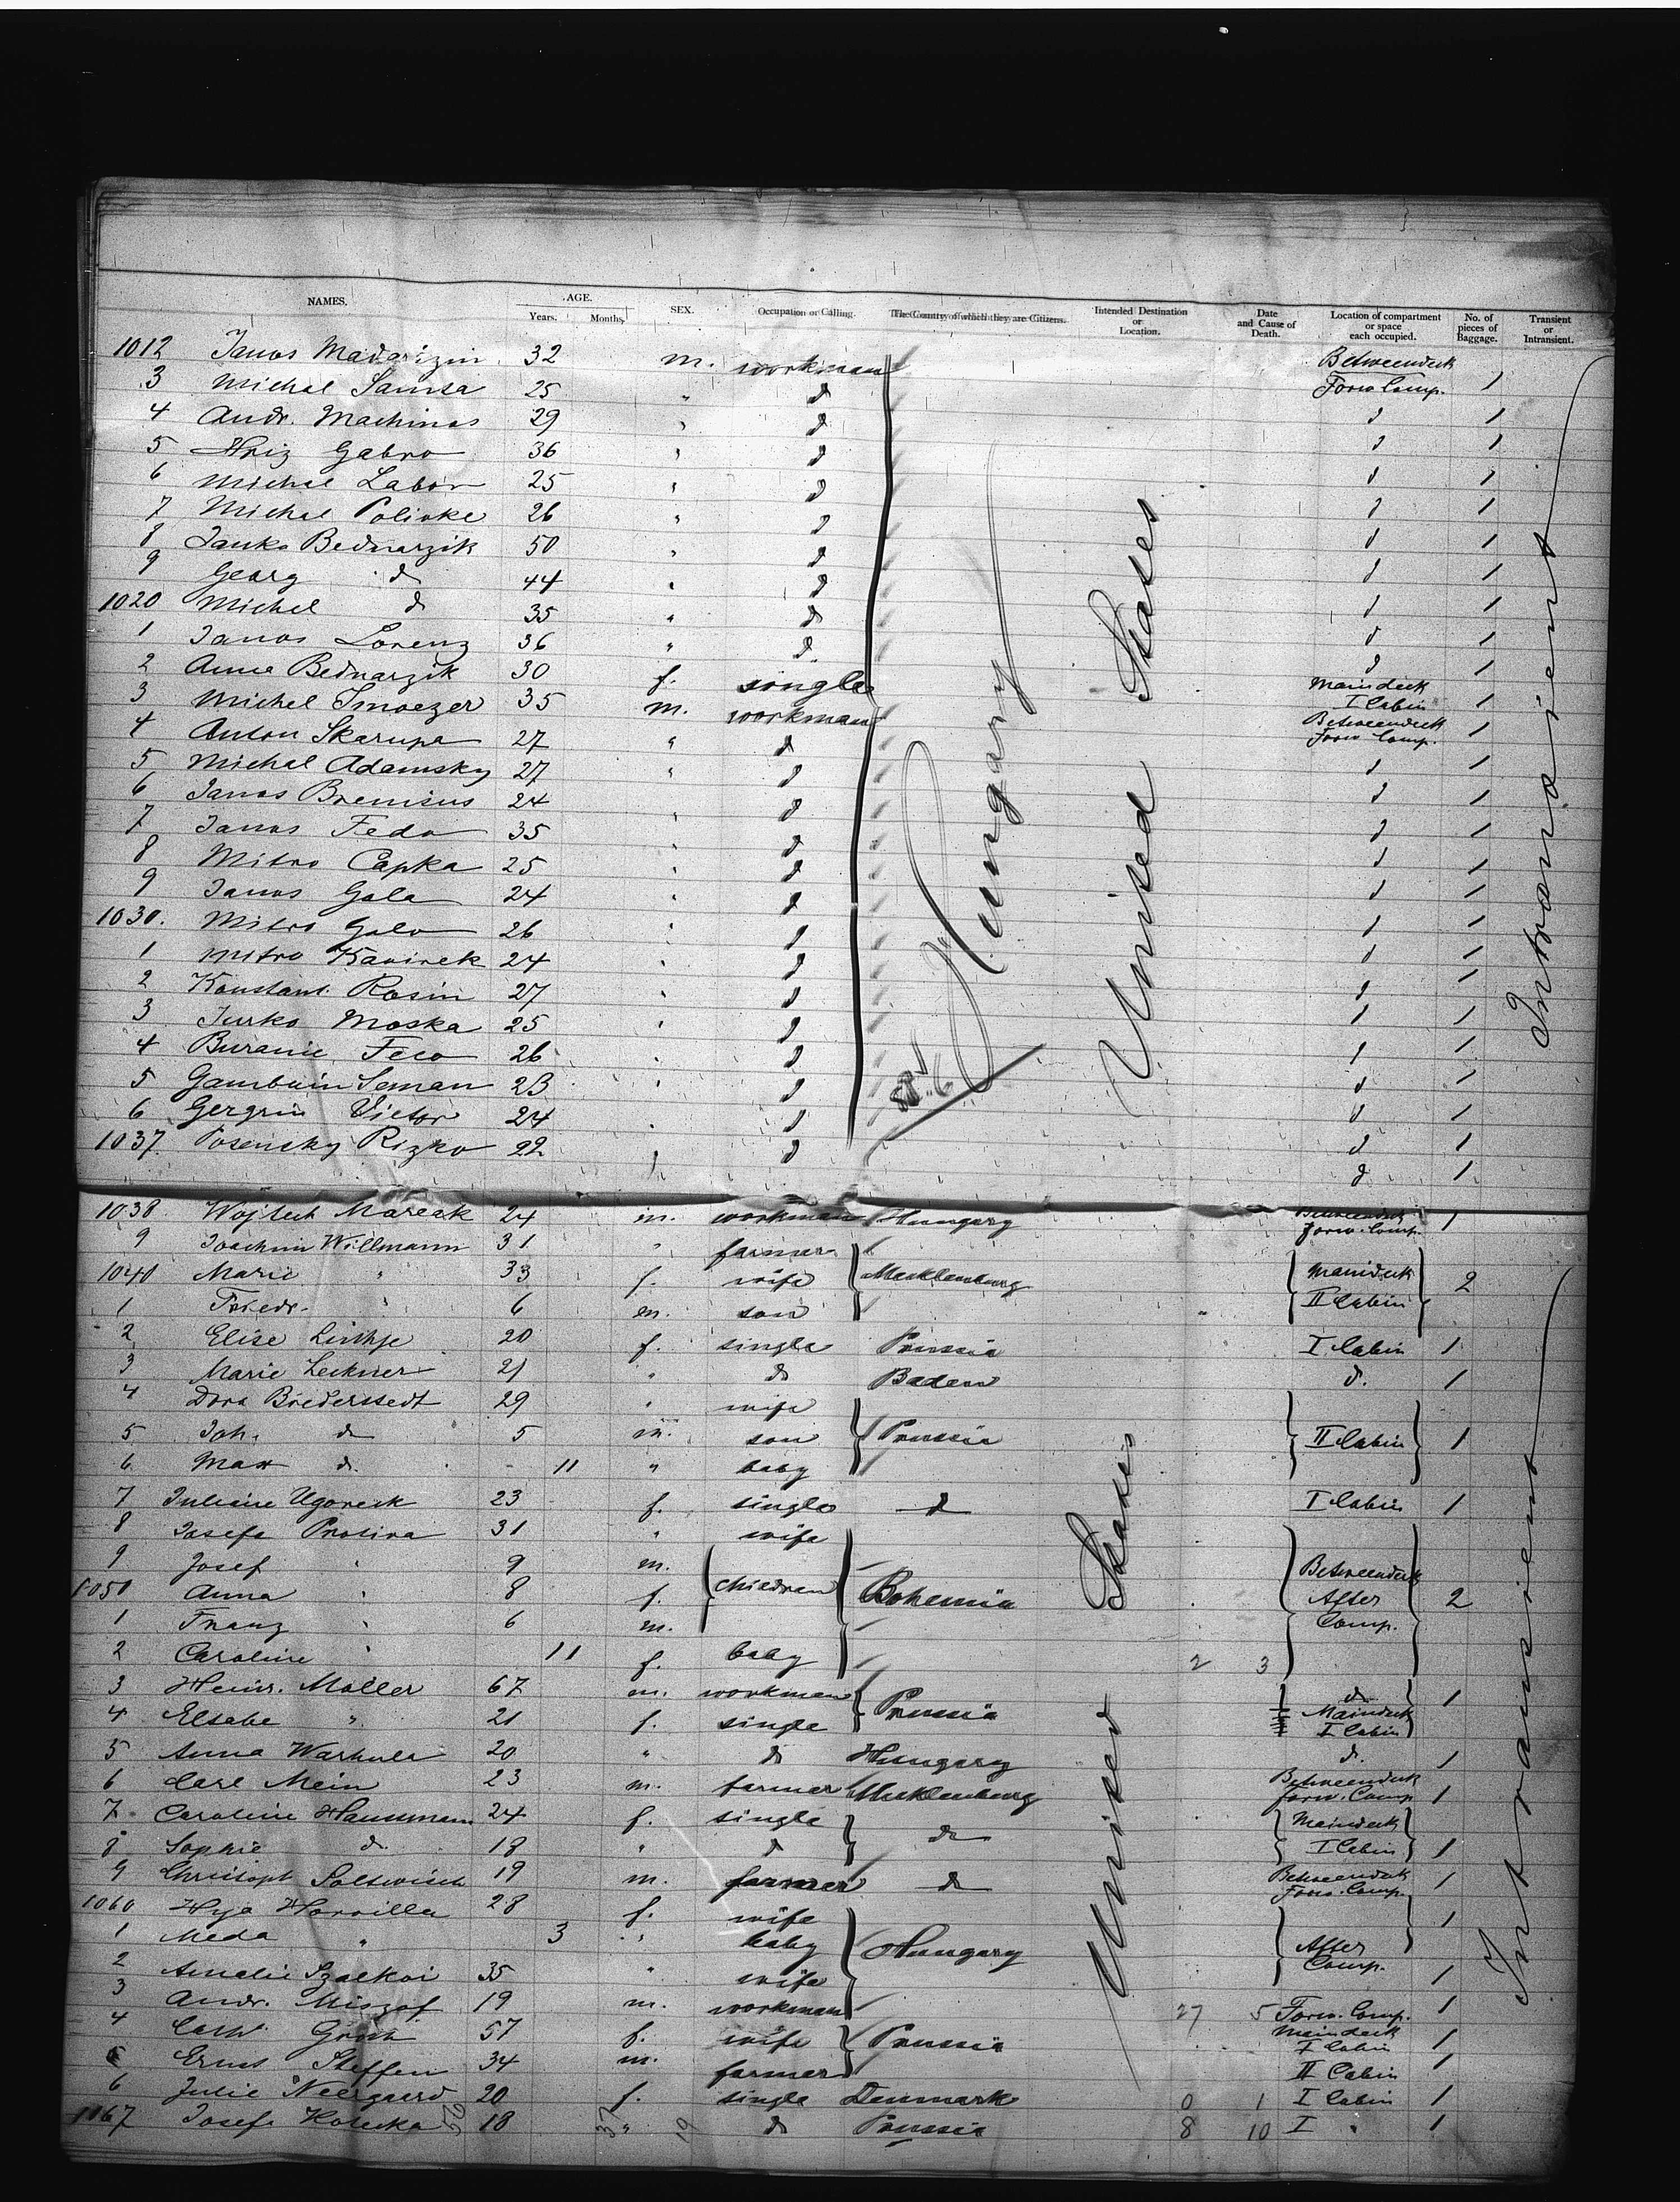 NAMES. AGE. Years. Months. SEX. Occupation or Calling. The Country of which they are Citizens. Intended Destination or Location. Date and Cause of Death. Location of compartment or space each occupied. No. of pieces of Baggage. Transient or Intransient.
1012 Janos 32 m. workman Betweendeck
3 Michal Samsa 25 " d Forw Comp. 1
4 Andr. Machinos 29 " d d 1
5 Hriz Gabro 36 " d d 1
6 Michal Labor 25 " d d 1
7 Michal Polivke 26 " d d 1
8 Janko Bednarzik 50 " d d 1
9 Georg d 44 " d d 1
1020 Michel d 35 " d d 1
1 Janos Lorenz 36 " d d 1
2 Anna Bednarzik 30 f. single Maindeck I Cabin 1
3 Michel 35 m. workman Betweendeck Forw Comp. 1
4 Anton Skarupa 27 " d d 1
5 Michal Adamsky 27 " d d 1
6 Janos 24 " d d 1
7 Janos Fedo 35 " d d 1
8 Mitro Capka 25 " d d 1
9 Janos Gala 24 " d d 1
1030. Mitro Galo 26 " d d 1
1 Mitro Kavinek 24 " d d 1
2 Konstant. Rosin 27 " d d 1
3 Jurko Moska 25 " d d 1
4 Buranic Feco 26 " d d 1
5 Seman 23 " d d 1
6 Victor 24 " d d 1
1037. Posensky Rizko 22 " d d 1
Hungary
United States
Intransient
1038 Wojtech Mareak 24 m. workman Hungary Betweendeck Forw. Comp. 1
9 Joachim Willmann 31 " farmer
1040 Marie " 33 f. wife Mecklenburg Maindeck II Cabin 2
1 Friedr. " 6 m. son
2 Elise 20 f. single Prussia I Cabin 1
3 Marie Leckner 21 " d Baden d. 1
4 Dora Brederstedt 29 " wife
5 Joh. d 5 m. son Prussia II Cabin 1
6 Max d. 11 " baby
7 Juliane Ugoreck 23 f. single d I Cabin 1
8 Josefa Prosiva 31 " wife
9 Josef " 9 m. children Betweendeck
1050 Anna " 8 f. Bohemia After 2
1 Franz " 6 m. Comp.
2 Caroline " 11 f. baby 2 3
3 Heinr. Möller 67 m. workman Prussia d. 1
4 Elsabe " 21 f. single Maindeck I Cabin
5 Anna Warhula 20 " d Hungary d. 1
6 Carl Mein 23 m. farmer Mecklenburg Betweendeck Forw. Comp 1
7 Caroline Haussmann 24 f. single d Maindeck
8 Sophie d. 18 " d I Cabin 1
9 Christoph Soltwisch 19 m. farmer d Betweendeck Forw. Comp. 1
1060 28 f. wife 1
1 Meda " 3 " baby Hungary After Comp.
2 Amalie Szalkai 35 " wife 1
3 Andr. 19 m. workman 27 5 Forw. Comp. 1
4 Cath. 57 f. wife Prussia Maindeck I Cabin 1
5 Ernst Steffen 34 m. farmer II Cabin 1
6 Julie Neergaard 20 f. single Denmark 0 1 I Cabin 1
1067 Josefa 18 " d Prussia 8 10 I " 1
United States
Intransient